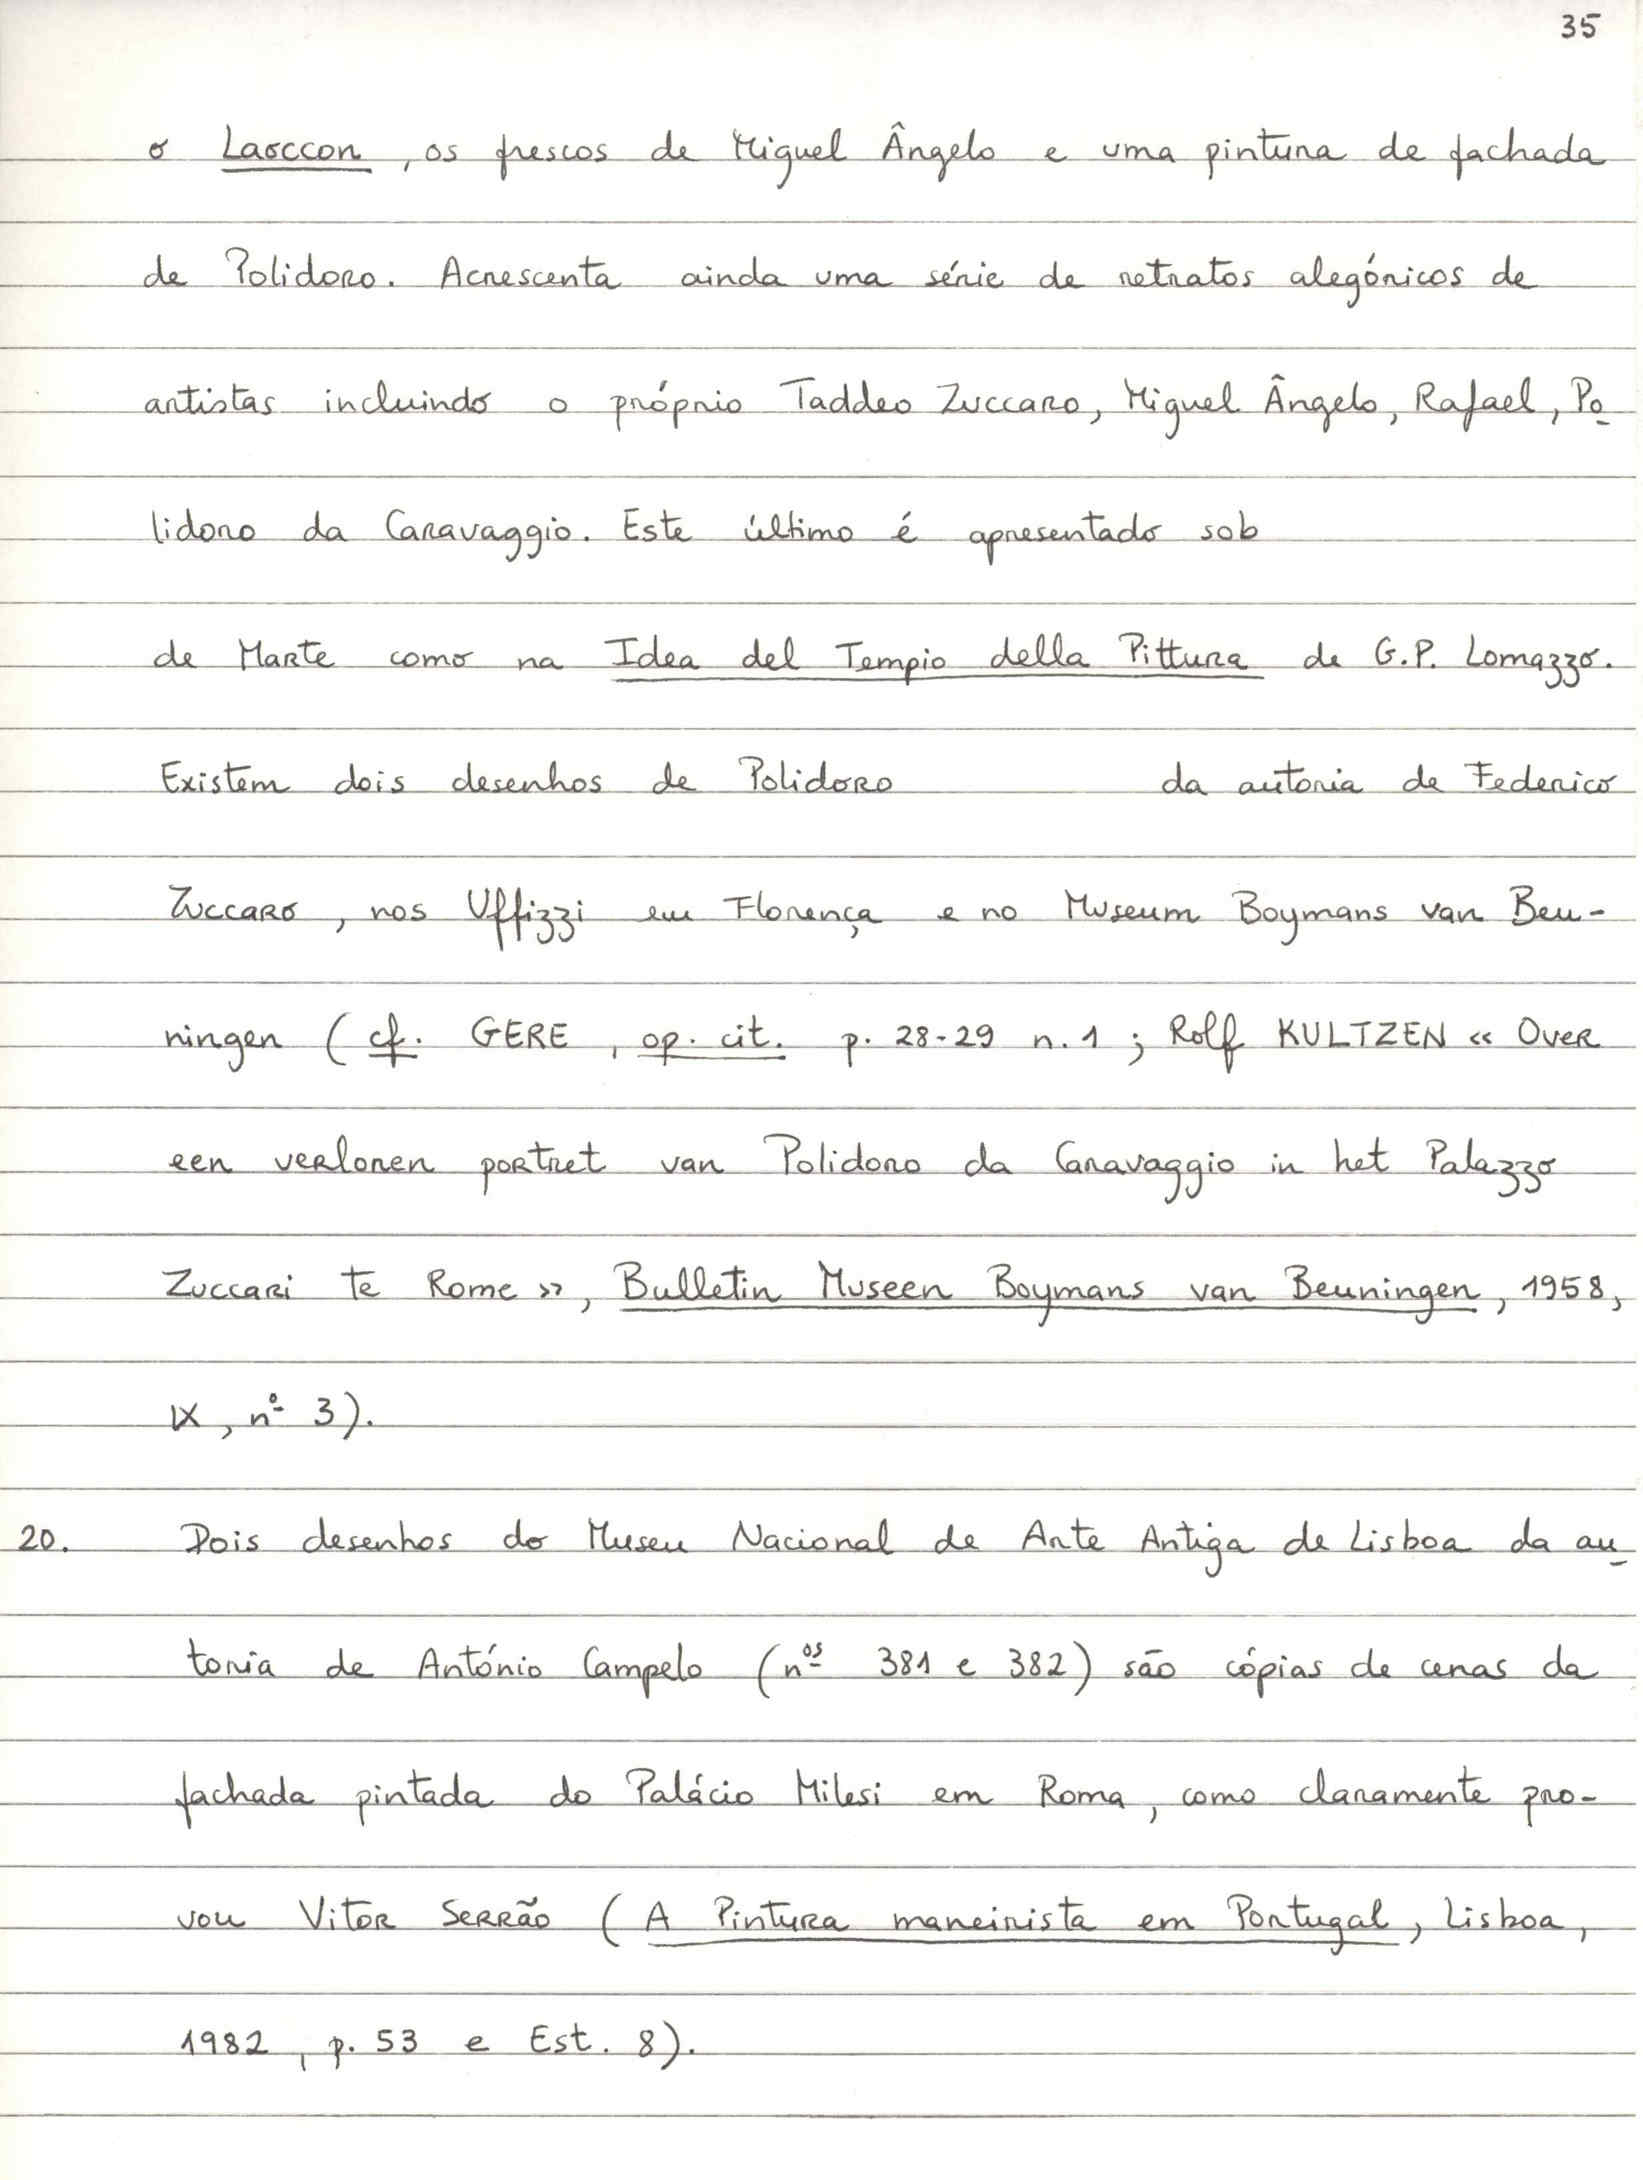 35
o Laoccon, os frescos de Miguel Ângelo e uma pintura de fachada
de Polidoro. Acrescenta ainda uma série de retratos alegóricos de
artistas incluindo o próprio Taddeo Zuccaro, Miguel Ângelo, Rafael, Po-
lidoro da Caravaggio. Este último é apresentado sob
de Marte como na Idea del Tempio della Pittura de G.P. Lomazzo.
Existem dois desenhos de Polidoro da autoria de Federico
Zuccaro, nos Uffizzi em Florença e no Museum Boymans van Beu-
ningen (cf. GERE, op. cit. p. 28-29 n. 1 ; Rolf KULTZEN « Over
een verloren portret van Polidoro da Caravaggio in het Palazzo
Zuccari te Rome », Bulletin Museen Boymans van Beuningen, 1958,
IX, nº 3).
20. Dois desenhos do Museu Nacional de Arte Antiga de Lisboa da au-
toria de António Campelo (nºs 381 e 382) são cópias de cenas da
fachada pintada do Palácio Milesi em Roma, como claramente pro-
vou Vitor Serrão (A Pintura maneirista em Portugal, Lisboa,
1982, p. 53 e Est. 8).